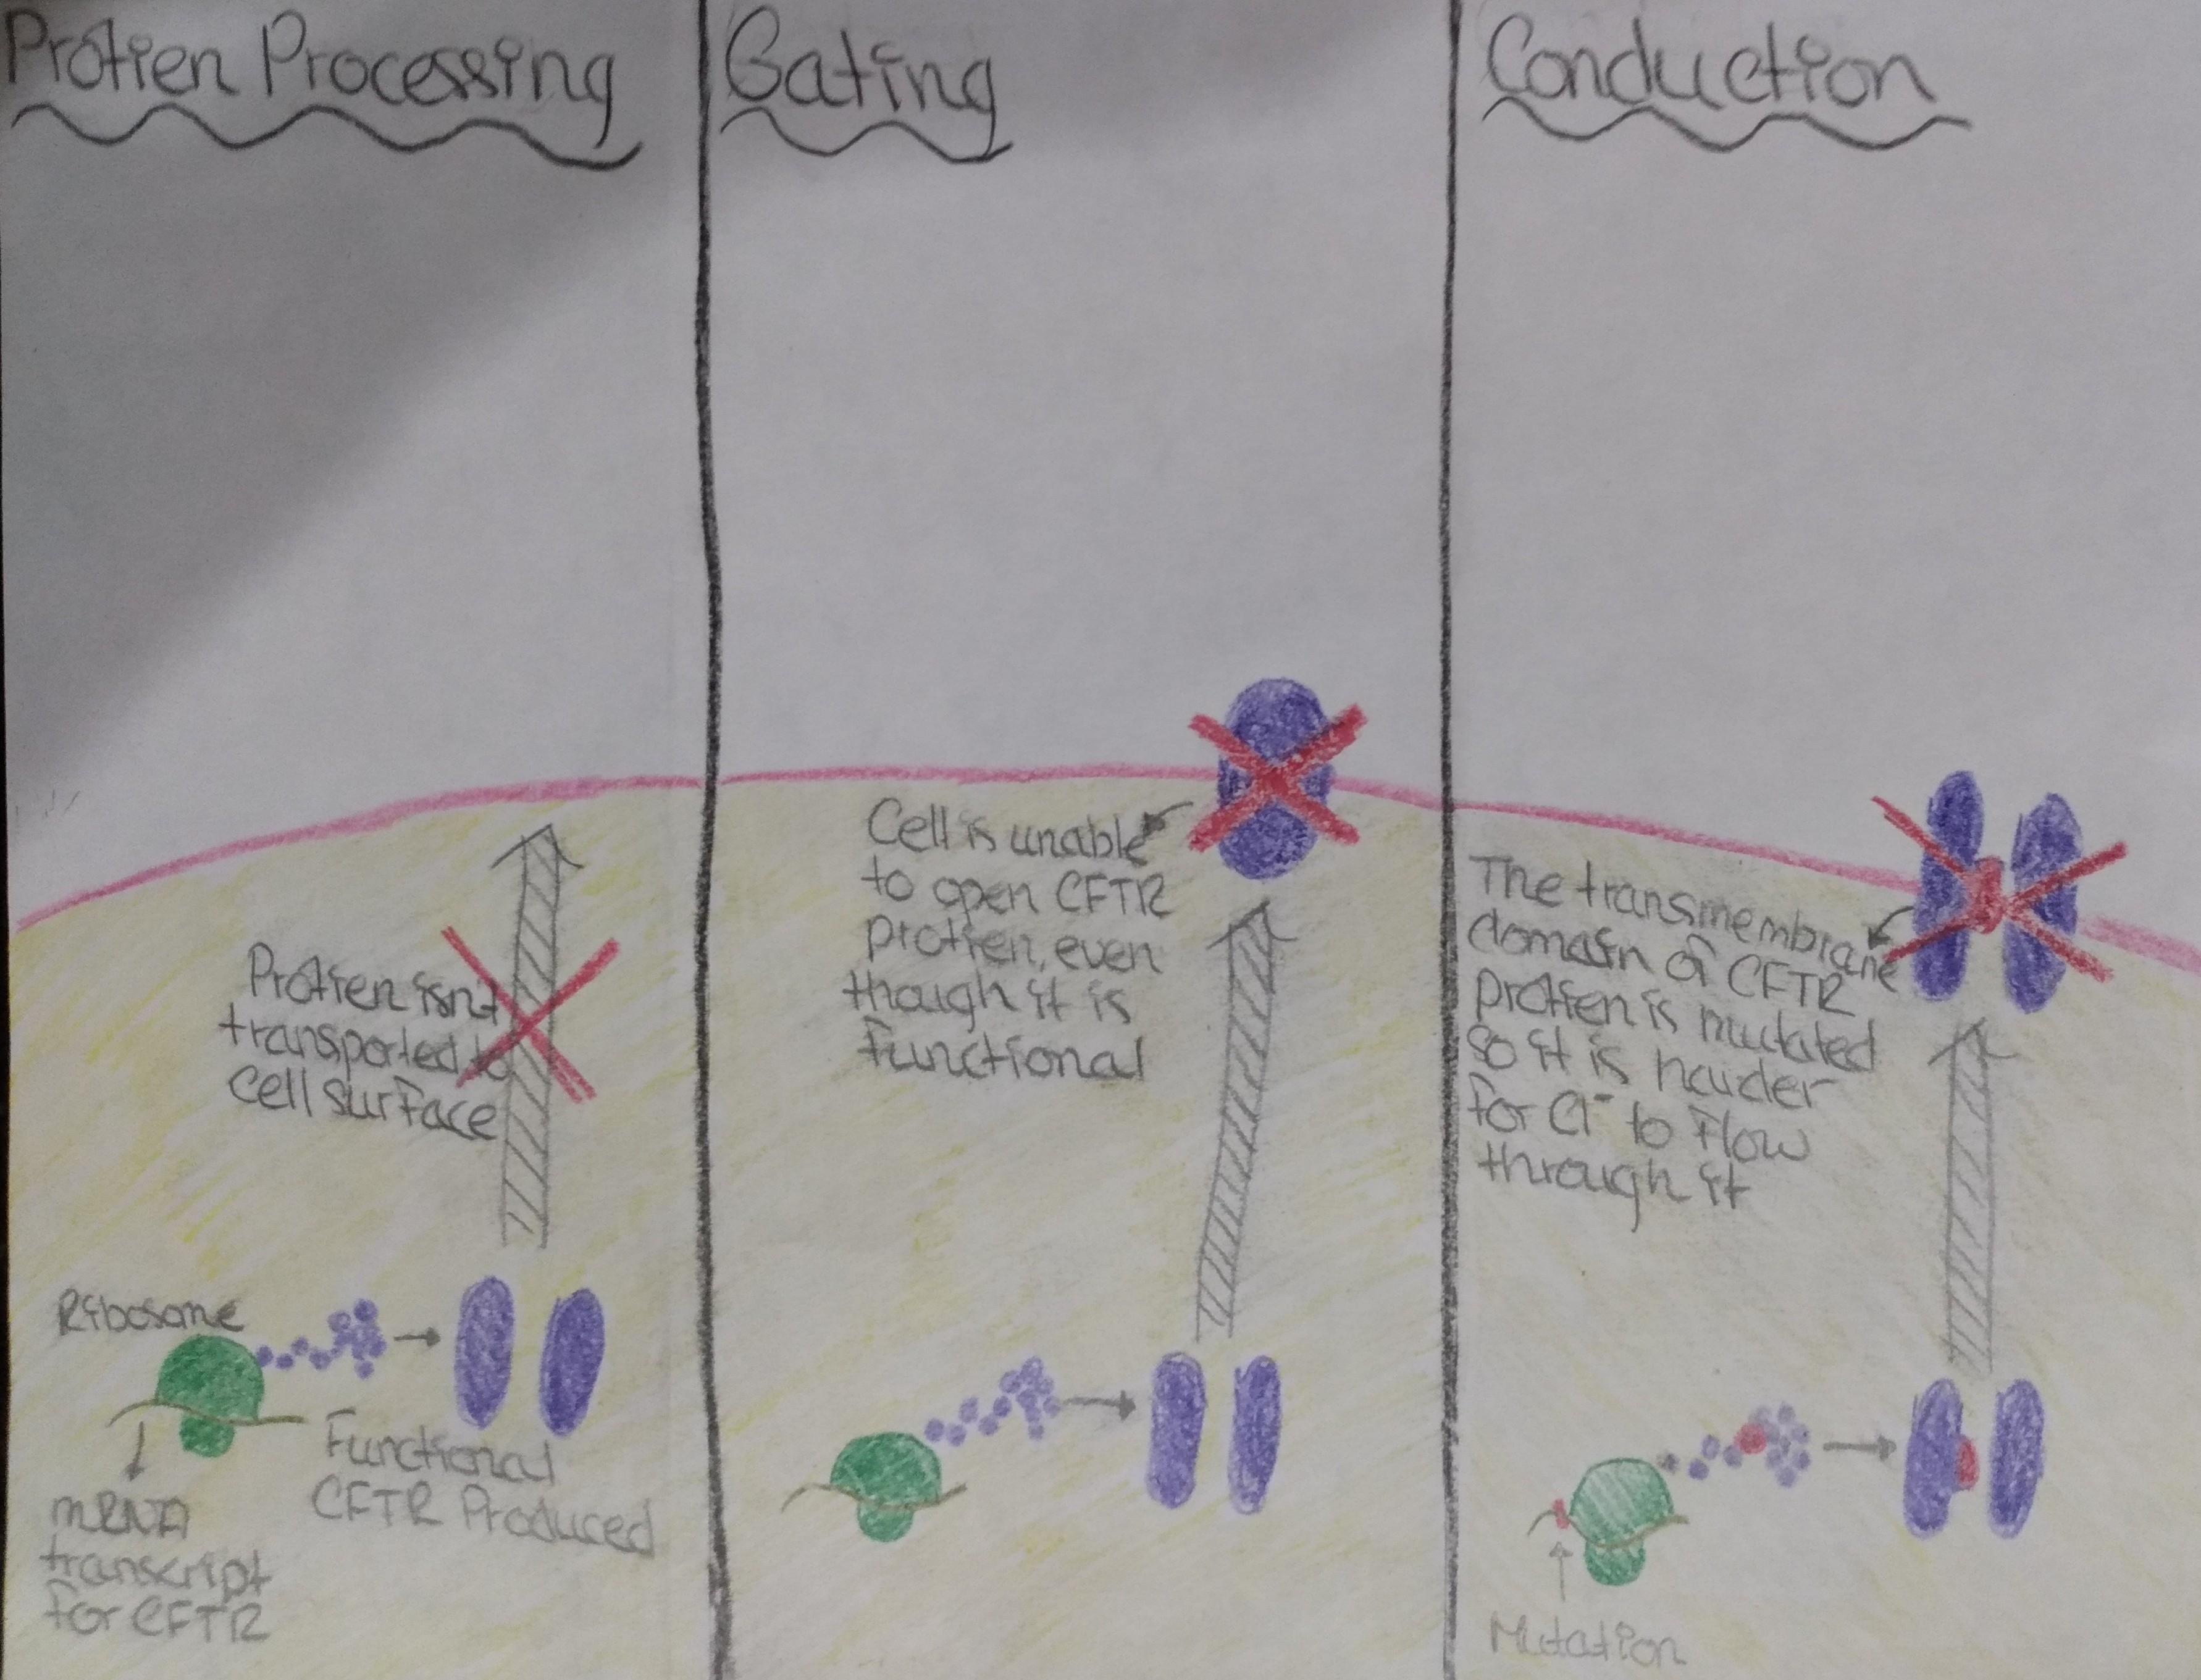 Protien Processing
Protien isn't
transported to
cell surface
Ribosome
Functional
CFTR Produced
mRNA
transcript
for CFTR
Gating
Cell is unable
to open CFTR
protien, even
though it is
Functional
Conduction
The transmembrane
domain of CFTR
protien is mutated
so it is harder
for Cl⁻ to flow
through it
Mutation